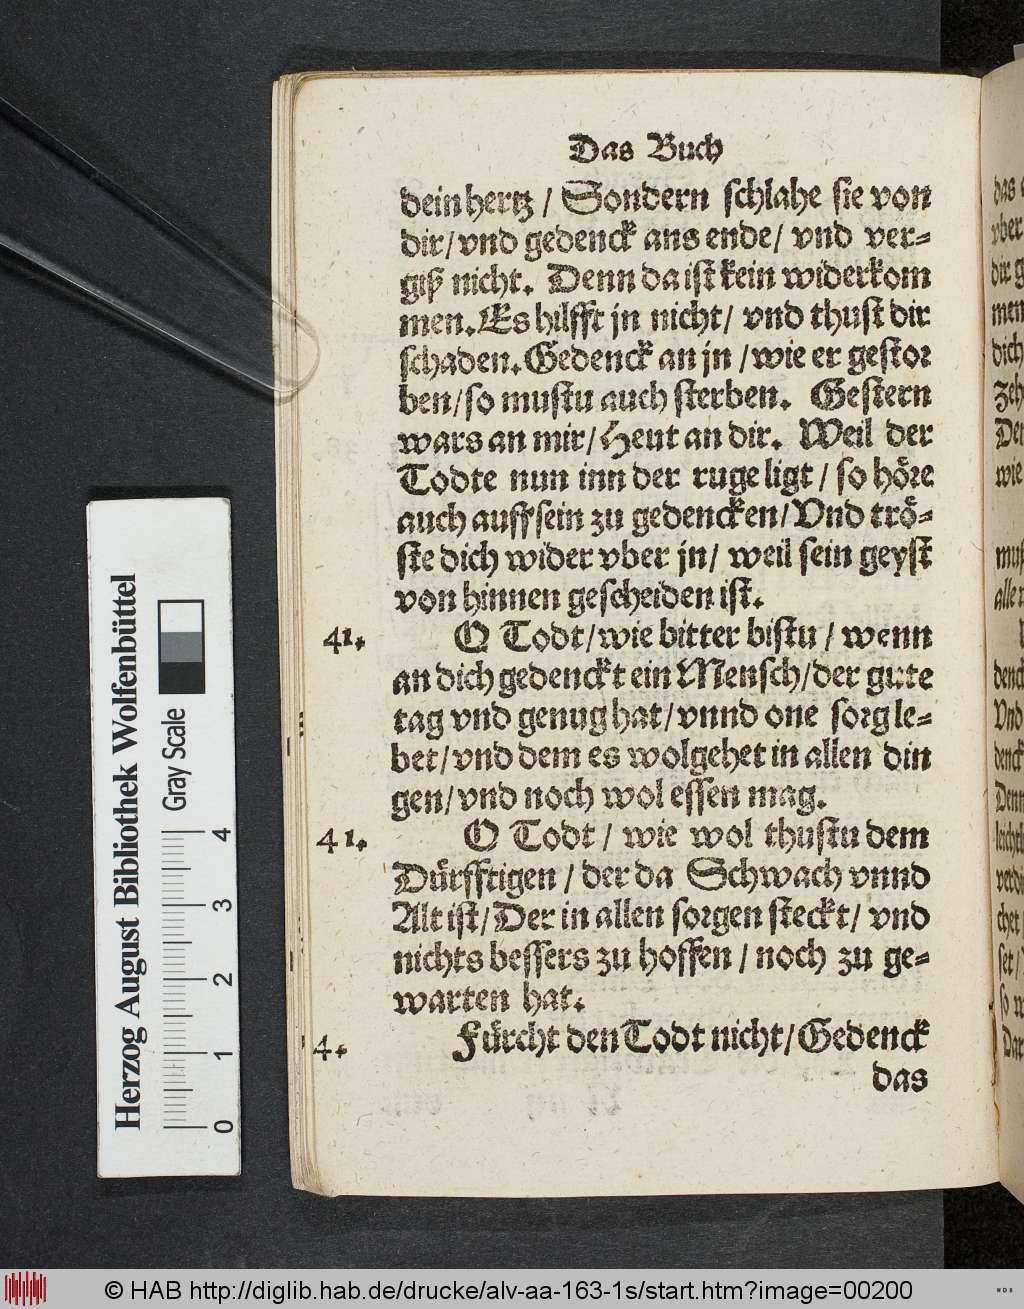 Das Buch
dein hertz / Sondern schlahe sie von
dir/vnd gedenck ans ende/ vnd ver=
giß nicht. Denn da ist kein widerkom
men. Es hilfft jn nicht/ vnd thust dir
schaden. Gedenck an jn /wie er gestor
ben/so mustu auch sterben. Gestern
wars an mir/Heut an dir. Weil der
Todte nun inn der ruge ligt / so höre
auch auff sein zu gedencken/Vnd trö=
ste dich wider vber jn/ weil sein geyst
von hinnen gescheiden ist.
41. O Todt/wie bitter bistu / wenn
an dich gedenckt ein Mensch/der gute
tag vnd genug hat/vnnd one sorg le=
bet/vnd dem es wolgehet in allen din
gen/vnd noch wol essen mag.
41. O Todt / wie wol thustu dem
Dürfftigen / der da Schwach vnnd
Alt ist/Der in allen sorgen steckt/ vnd
nichts bessers zu hoffen / noch zu ge=
warten hat.
4. Fürcht den Todt nicht/Gedenck
das
Herzog August Bibliothek Wolfenbüttel
Gray Scale
0 1 2 3 4
© HAB http://diglib.hab.de/drucke/alv-aa-163-1s/start.htm?image=00200